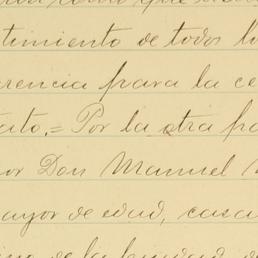 timiento de todos lo
erencia para la ce
tato.= Por la otra pa
or Don Manuel
ayor de edad, casa
de la